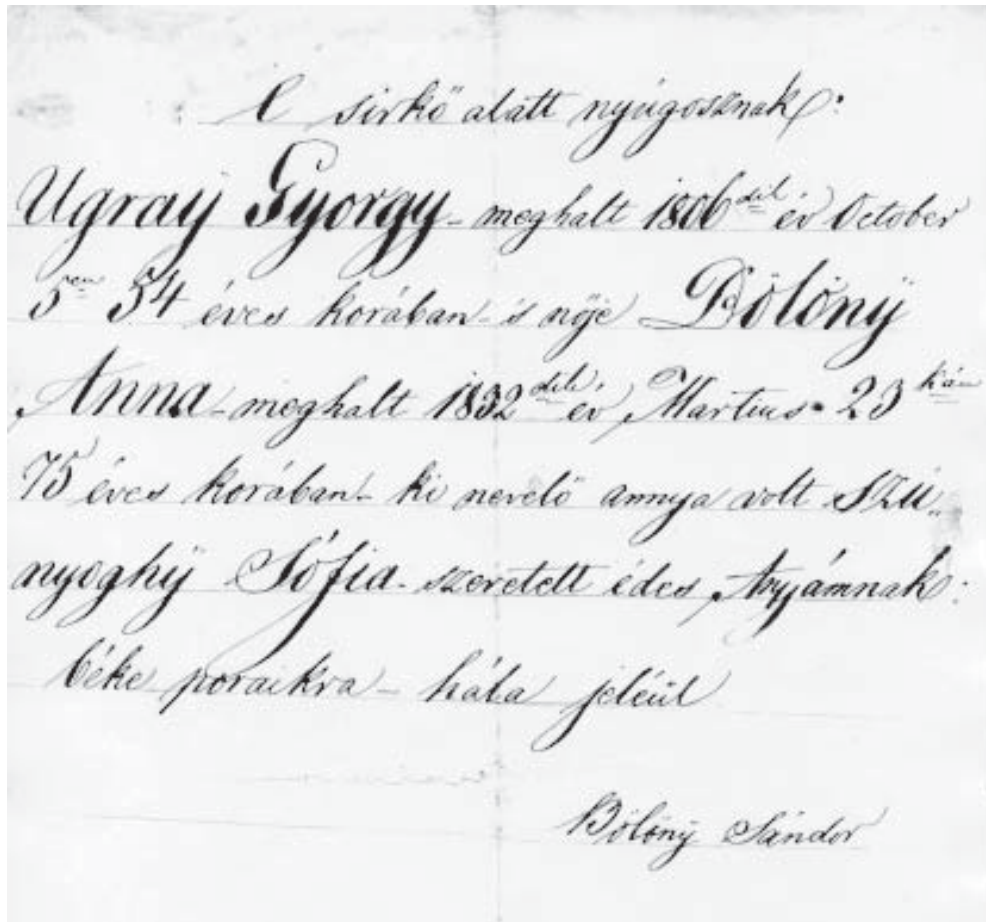 E sirkő alatt nyúgosznak:
Ugraÿ György - meghalt 1806dik év October
5en 54 éves korában - is nője Bölönÿ
Anna - meghalt 1832dik év, Martius 23kán
75 éves korában - ki nevelő annya volt Szú„
nyoghÿ Sófia - szeretett édes Anyjámnak:
béke poraikra - hála jeléül
Bölönÿ Sándor